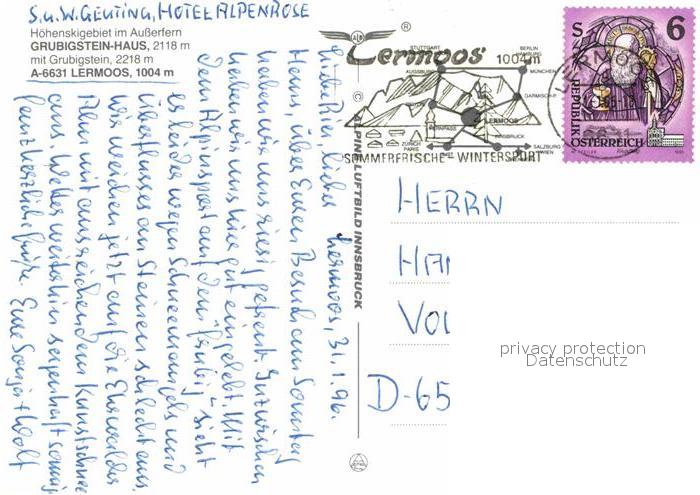 S. u. W. GEUTING, HOTEL ALPENROSE
Höhenskigebiet im Außerfern
GRUBIGSTEIN-HAUS, 2118 m
mit Grubigstein, 2218 m
A-6631 LERMOOS, 1004 m
Lermoos, 31.1.96.
Liebe
Herr, über Euren Besuch am Sonntag
haben wir uns riesig gefreut. Inzwischen
haben wir uns hier gut eingelebt. Mit
dem Alpinsport auf dem sieht
es leider wegen Schneemangels und
Überflusses an Steinen schlecht aus.
Wir weichen jetzt auf die Ehrwalder
Alm mit ausreichendem Kunstschnee
aus. Wetter weiterhin sonnig
Ganz herzliche Grüße. Eure Sonja + Wolf
© ALPINE LUFTBILD INNSBRUCK
Lermoos
1004m
STUTTGART
BERLIN
HAMBURG
AUGSBURG
MÜNCHEN
LERMOOS
FERNPASS
INNSBRUCK
ZÜRICH
PARIS
SALZBURG
WIEN
SOMMERFRISCHE - WINTERSPORT
S 6
REPUBLIK
ÖSTERREICH
HERRN
HAI
VOI
D-65
privacy protection
Datenschutz